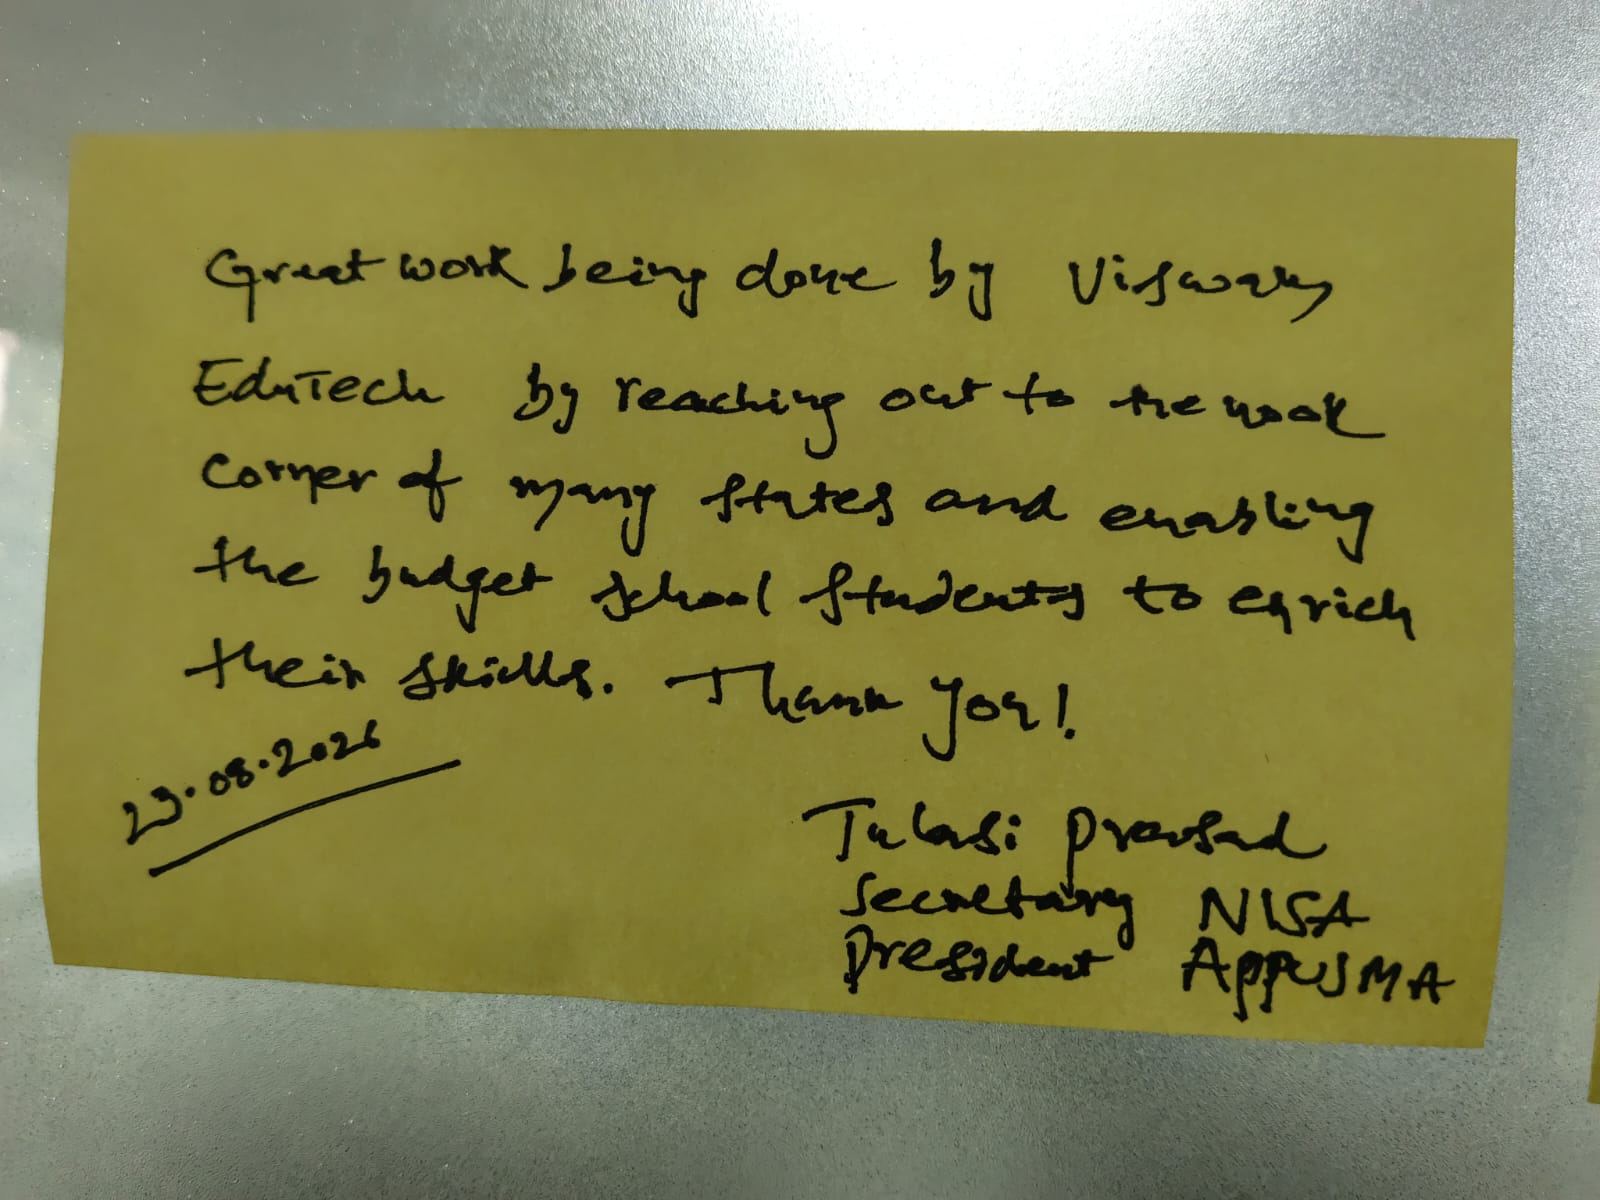 Great work being done by
EduTech by reaching out to the nook
corner of many states and enabling
the budget school students to enrich
their skills. Thank you!
Tulasi Prasad
Secretary NISA
President APPUSMA